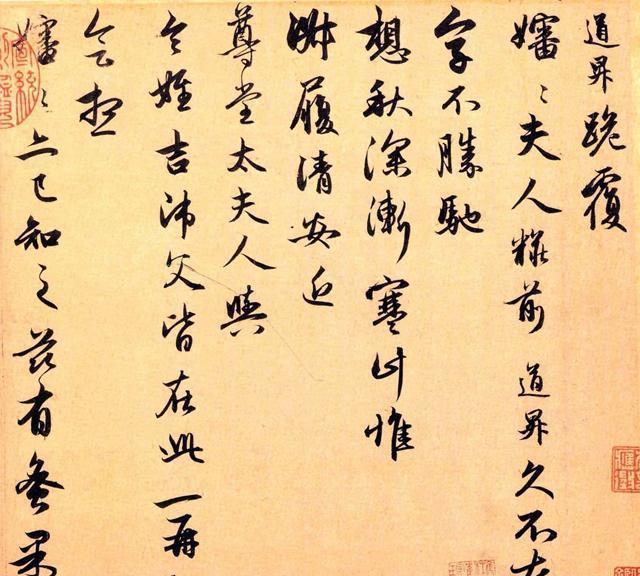 道昇跪覆
嬸〻夫人粧前道昇久不奉
字不勝馳
想秋深漸寒計惟
淑履清安近
尊堂太夫人與
令姪吉師父皆在此一再
會想
嬸〻亦已知之茲有蚤果